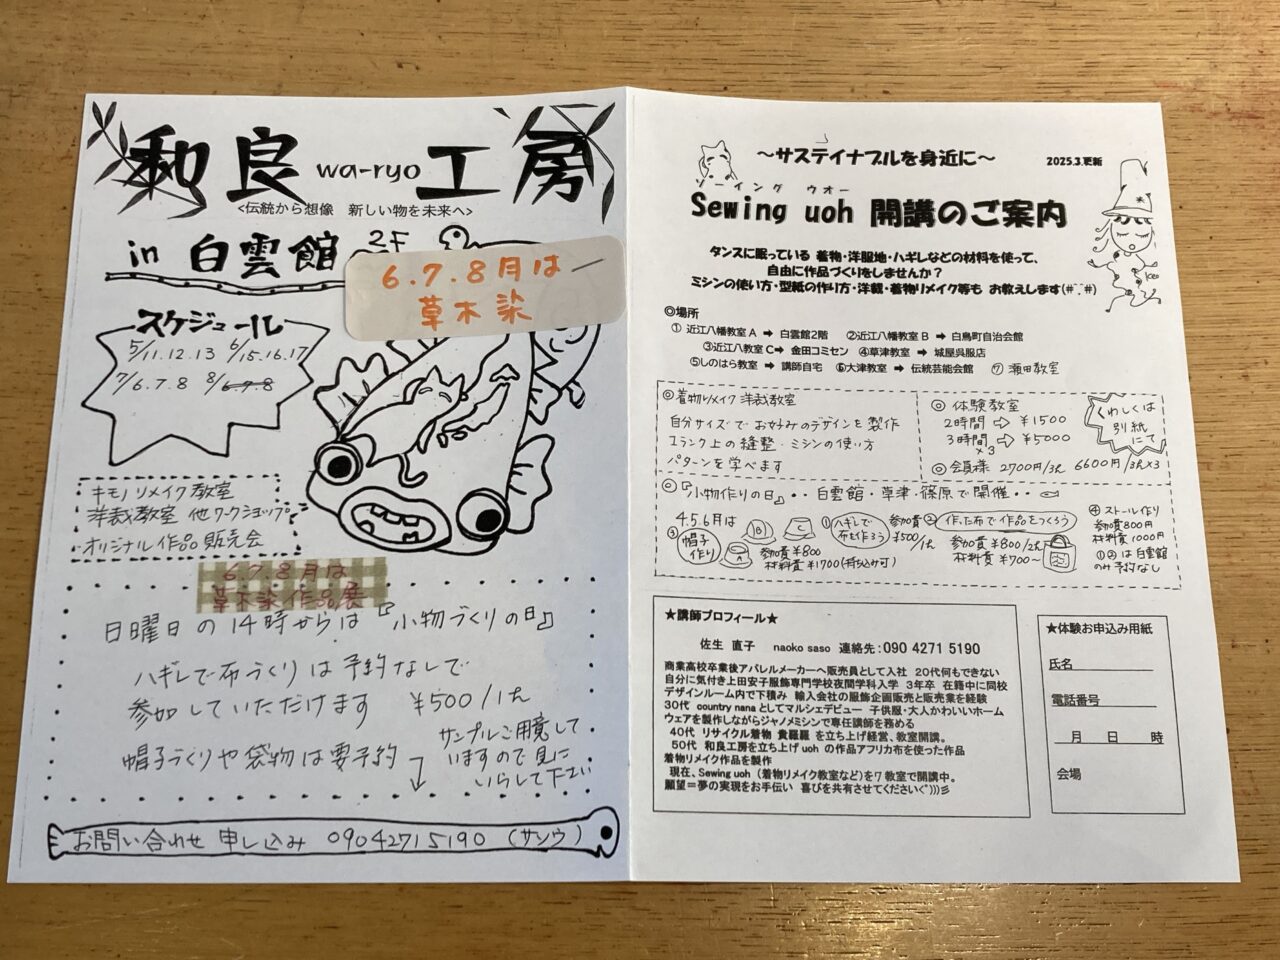 和良 wa-ryo 工房
<伝統から想像　新しい物を未来へ>
in 白雲館 2F
6.7.8月は
草木染
スケジュール
5/11.12.13 6/15.16.17
7/6.7.8 8/6.7.8
キモノリメイク教室
洋裁教室 他ワークショップ
オリジナル作品販売会
6.7.8月は
草木染作品展
日曜日の14時からは『小物づくりの日』
ハギレで布づくりは予約なしで
参加していただけます ¥500/1h
帽子づくりや袋物は要予約
サンプルご用意して
いますので見に
いらして下さい
お問い合わせ 申し込み 09042715190 (サソウ)
～サステイナブルを身近に～
2025.3.更新
ソーイング ウオー
Sewing uoh 開講のご案内
タンスに眠っている 着物・洋服地・ハギレなどの材料を使って、
自由に作品づくりをしませんか？
ミシンの使い方・型紙の作り方・洋裁・着物リメイク等も お教えします(#^^#)
◎場所
① 近江八幡教室 A ➡ 白雲館2階　②近江八幡教室 B ➡ 白鳥町自治会館
③近江八教室 C➡ 金田コミセン　④草津教室 ➡ 城屋呉服店
⑤しのはら教室 ➡ 講師自宅　⑥大津教室 ➡ 伝統芸能会館　⑦ 瀬田教室
◎着物リメイク 洋裁教室
自分サイズで お好みのデザインを製作
1ランク上の縫整・ミシンの使い方
パターンを学べます
◎ 体験教室
2時間 ⇨ ¥1500
3時間×3 ⇨ ¥5000
くわしくは
別紙
にて
◎会員様 2700円/3h 6600円/3h×3
◎『小物作りの日』・・白雲館・草津・篠原で開催・・
4.5.6月は
③帽子作り
B
C
A
参加費¥800
材料費¥1700(持ち込み可)
①ハギレで布を作ろう
参加費¥500/1h
②作った布で作品をつくろう
参加費¥800/2h
材料費¥700～
④ストール作り
参加費800円
材料費1000円
①②は白雲館
のみ予約なし
★講師プロフィール★
佐生 直子　naoko saso 連絡先：090 4271 5190
商業高校卒業後アパレルメーカーへ販売員として入社 20代何もできない
自分に気付き上田安子服飾専門学校夜間学科入学 3年卒 在籍中に同校
デザインルーム内で下積み 輸入会社の服飾企画販売と販売業を経験
30代 country nana としてマルシェデビュー 子供服・大人かわいいホーム
ウェアを製作しながらジャノメミシンで専任講師を務める
40代 リサイクル着物 貴羅羅 を立ち上げ経営、教室開講。
50代 和良工房を立ち上げ uoh の作品アフリカ布を使った作品
着物リメイク作品を製作
現在、Sewing uoh（着物リメイク教室など)を7教室で開講中。
願望＝夢の実現をお手伝い 喜びを共有させてください<゜)))彡
★体験お申込み用紙
氏名
電話番号
月　日　時
会場